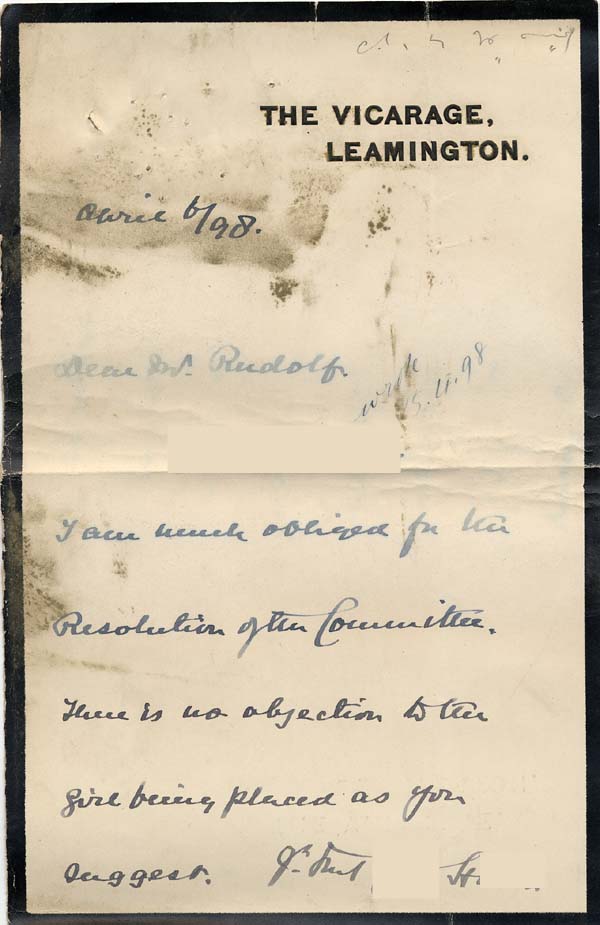 THE VICARAGE,
LEAMINGTON.
April 6/98.
Dear Mr. Rudolf.
I am much obliged for the
Resolution of the Committee.
There is no objection to the
girl being placed as you
suggest.